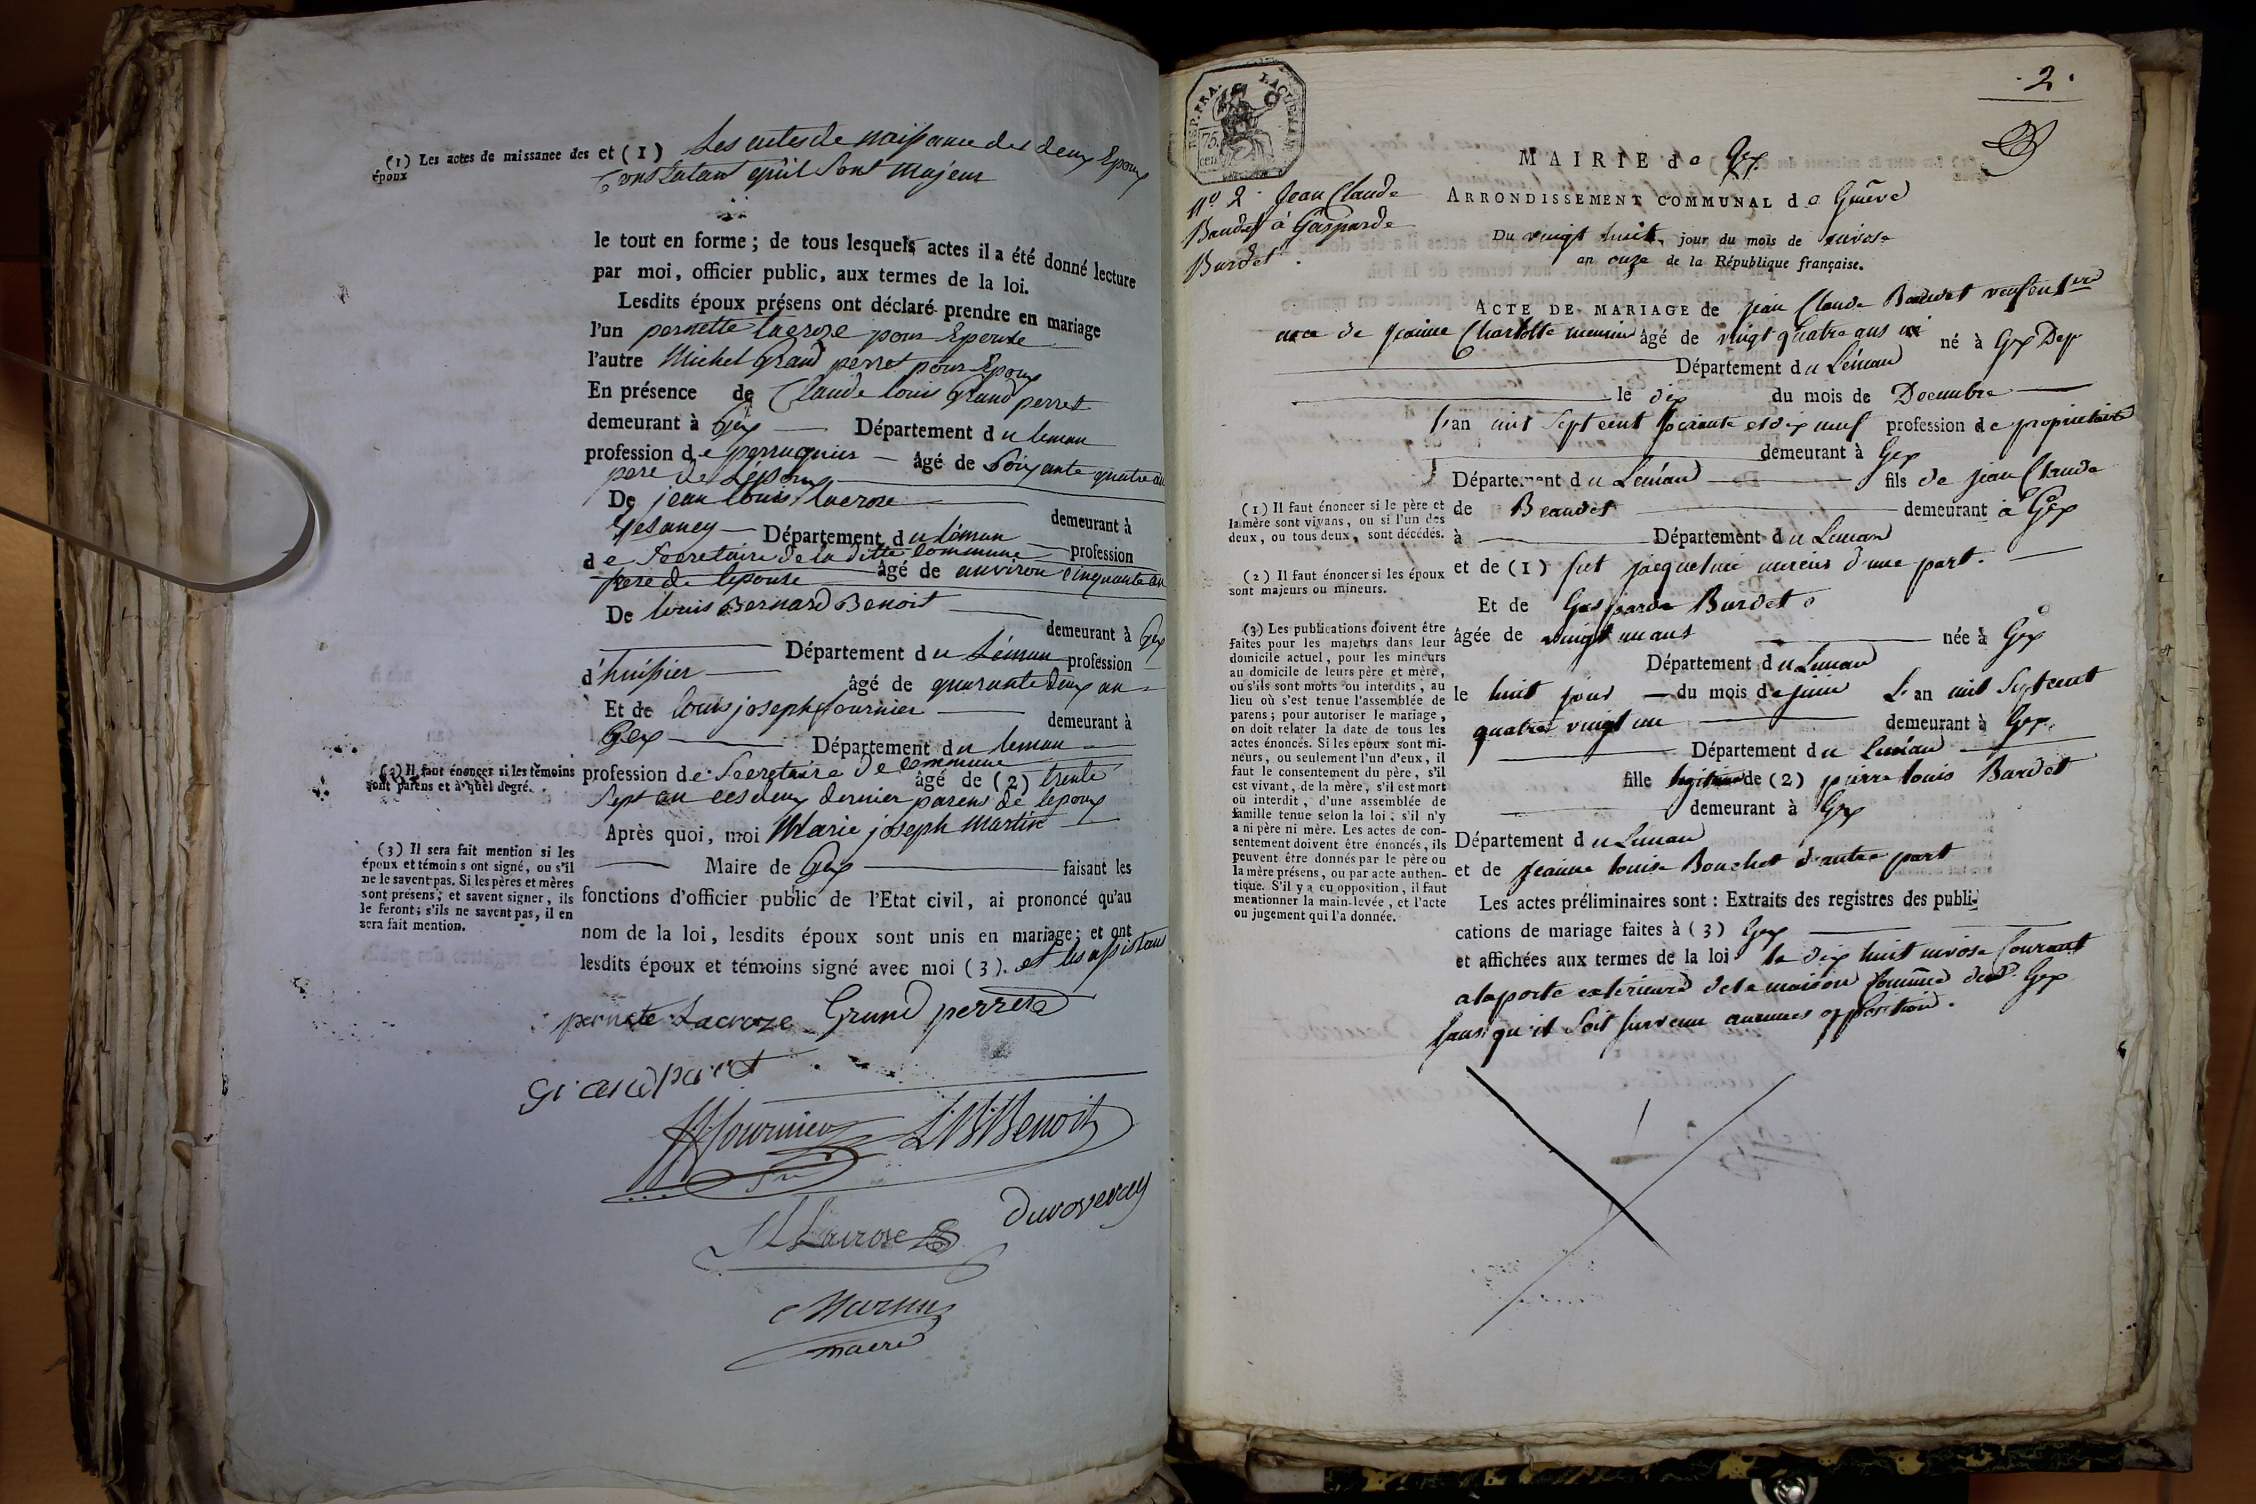 (1) Les actes de naissance des
époux
et (1) Les actes de naissance des deux Epoux
Constatant qu'il sont Majeur
le tout en forme; de tous lesquels actes il a été donné lecture
par moi, officier public, aux termes de la loi.
Lesdits époux présens ont déclaré prendre en mariage
l'un pernette lacroze pour Epouse
l'autre Michel Grand perret pour Epoux
En présence de Claude louis Grand perret
demeurant à Gex Département du leman
profession de perruquier âgé de Soixante quatre an
pere de l'Epoux
De jean louis lacrose
demeurant à
Gesancy Département du léman
profession
de Secretaire de la ditte Commune
pere de lepouse âgé de anviron cinquante an
De louis Bernard Benoit
demeurant à Gex
Département du Léman profession
d'huissier âgé de quarante deux an
Et de louis joseph fournier demeurant à
Gex Département du leman
(2) Il faut énoncer si les témoins
sont parens et à quel degré.
profession de Secretaire de Commune âgé de (2) trente
Sept an ces deux dernier parens de lepoux
Après quoi, moi Marie joseph Martin
Maire de Gex faisant les
fonctions d'officier public de l'Etat civil, ai prononcé qu'au
nom de la loi, lesdits époux sont unis en mariage; et ont
lesdits époux et témoins signé avec moi (3). et les assistans
(3) Il sera fait mention si les
époux et témoins ont signé, ou s'il
ne le savent pas. Si les pères et mères
sont présens; et savent signer, ils
le feront; s'ils ne savent pas, il en
sera fait mention.
pernete Lacroze Grand perret
Grandperret
fournier L. B. Benoit
Sre
JL Lacrose
Duroveray
Martin
maire
. 2 .
REP. FRA.
75
cen
N° 2. Jean Claude
Baudet à Gasparde
Burdet.
MAIRIE de Gex
ARRONDISSEMENT COMMUNAL de Genève
Du vingt huit, jour du mois de nivose
an onze de la République française.
ACTE DE MARIAGE de jean Claude Beaudet veuf en 1ere
noce de jeanne Charlotte âgé de vingt quatre ans né à Gex
Département du Léman
le dix du mois de Decembre
l'an mil Sept cent soixante et dix neuf profession de propriétaire
demeurant à Gex
Département du Léman fils de jean Claude
(1) Il faut énoncer si le père et
la mère sont vivans, ou si l'un des
deux, ou tous deux, sont décédés.
de Beaudet demeurant à Gex
à Département du Leman
et de (1) jaqueline d'une part.
(2) Il faut énoncer si les époux
sont majeurs ou mineurs.
Et de Gasparde Burdet
âgée de vingt un ans née à Gex
Département du Leman
le huit jour du mois de juin l'an mil Sept cent
quatre vingt un demeurant à Gex
Département du Leman
fille légitime de (2) pierre louis Burdet
demeurant à Gex
Département du Leman
et de jeanne louise Bouchet d'autre part
(3) Les publications doivent être
faites pour les majeurs dans leur
domicile actuel, pour les mineurs
au domicile de leurs père et mère,
ou s'ils sont morts ou interdits, au
lieu où s'est tenue l'assemblée de
parens; pour autoriser le mariage,
on doit relater la date de tous les
actes énoncés. Si les époux sont mi-
neurs, ou seulement l'un d'eux, il
faut le consentement du père, s'il
est vivant, de la mère, s'il est mort
ou interdit, d'une assemblée de
famille tenue selon la loi, s'il n'y
a ni père ni mère. Les actes de con-
sentement doivent être énoncés, ils
peuvent être donnés par le père ou
la mère présens, ou par acte authen-
tique. S'il y a eu opposition, il faut
mentionner la main-levée, et l'acte
ou jugement qui l'a donnée.
Les actes préliminaires sont: Extraits des registres des publi-
cations de mariage faites à (3) Gex
et affichées aux termes de la loi le dix huit nivose Courant
a la porte exterieure de la maison Commune de Gex
sans qu'il soit survenu aucunes opposition.